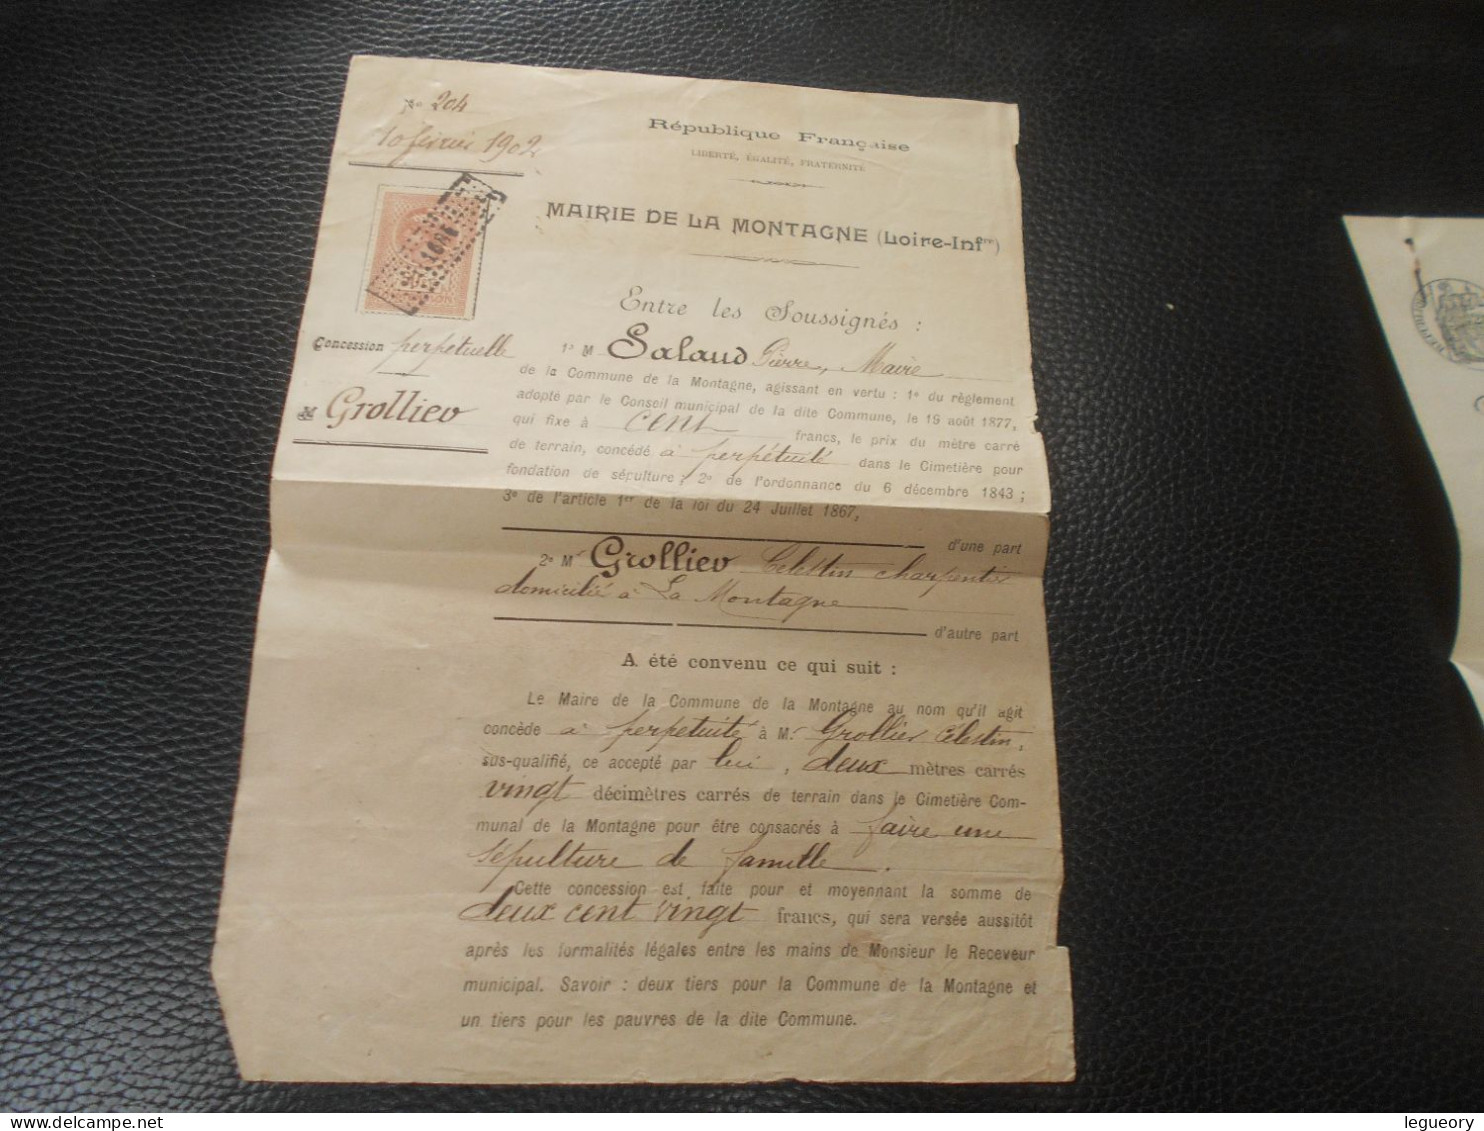 N° 204
10 février 1902
République Française
LIBERTÉ, ÉGALITÉ, FRATERNITÉ
MAIRIE DE LA MONTAGNE (Loire-Inf^re)
Concession perpétuelle
M Grollier
Entre les Soussignés :
1° M Salaud Pierre, Maire
de la Commune de la Montagne, agissant en vertu : 1° du règlement
adopté par le Conseil municipal de la dite Commune, le 19 août 1877,
qui fixe à cent francs, le prix du mètre carré
de terrain, concédé à perpétuité dans le Cimetière pour
fondation de sépulture ; 2° de l'ordonnance du 6 décembre 1843 ;
3° de l'article 1er de la loi du 24 Juillet 1867,
d'une part
2° M^r Grollier Célestin charpentier
domicilié à La Montagne
d'autre part
A été convenu ce qui suit :
Le Maire de la Commune de la Montagne au nom qu'il agit
concède à perpétuité à M. Grollier Célestin,
sus-qualifié, ce accepté par lui, deux mètres carrés
vingt décimètres carrés de terrain dans le Cimetière Com-
munal de la Montagne pour être consacrés à faire une
sépulture de famille.
Cette concession est faite pour et moyennant la somme de
deux cent vingt francs, qui sera versée aussitôt
après les formalités légales entre les mains de Monsieur le Receveur
municipal. Savoir : deux tiers pour la Commune de la Montagne et
un tiers pour les pauvres de la dite Commune.
legueory